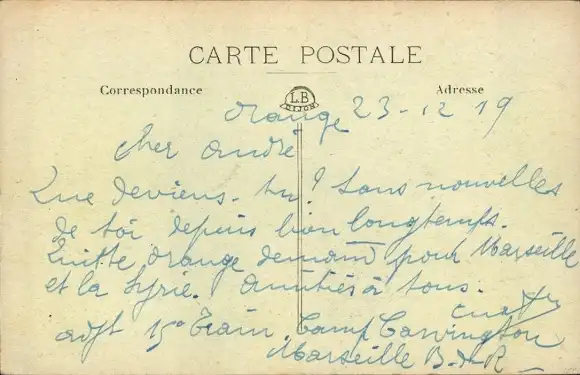 CARTE POSTALE
Correspondance
Adresse
L.B
DIJON
Orange 23-12 19
Cher André
Que deviens-tu? Sans nouvelles
de toi depuis bien longtemps.
Quitte Orange demain pour Marseille
et la Syrie. Amitiés à tous.
adjt 15e Train. Camp Carvington
Marseille B-d-R-